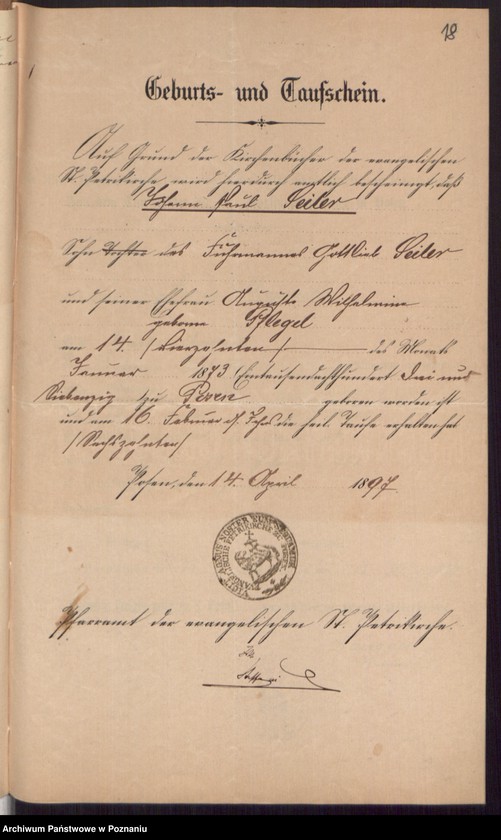 18
Geburts- und Taufschein.
Auf Grund der Kirchenbücher der evangelischen
St. Petrikirche wird hierdurch amtlich bescheinigt, daß
Johann Paul Seiler
Sohn Tochter des Fuhrmannes Gottlieb Seiler
und seiner Ehefrau Auguste Wilhelmine
geborene Pflegel
am 14. /Vierzehnten/ des Monats
Januar 1873 Eintausendachthundert drei und
Siebenzig zu Posen geboren worden ist
und am 16. Februar ej. die heil. Taufe erhalten hat
/Sechszehnten/
Posen, den 14. April 1897.
AGNUS NOSTER
VICIT
Pfarramt der evangelischen St. Petrikirche.
Archiwum Państwowe w Poznaniu